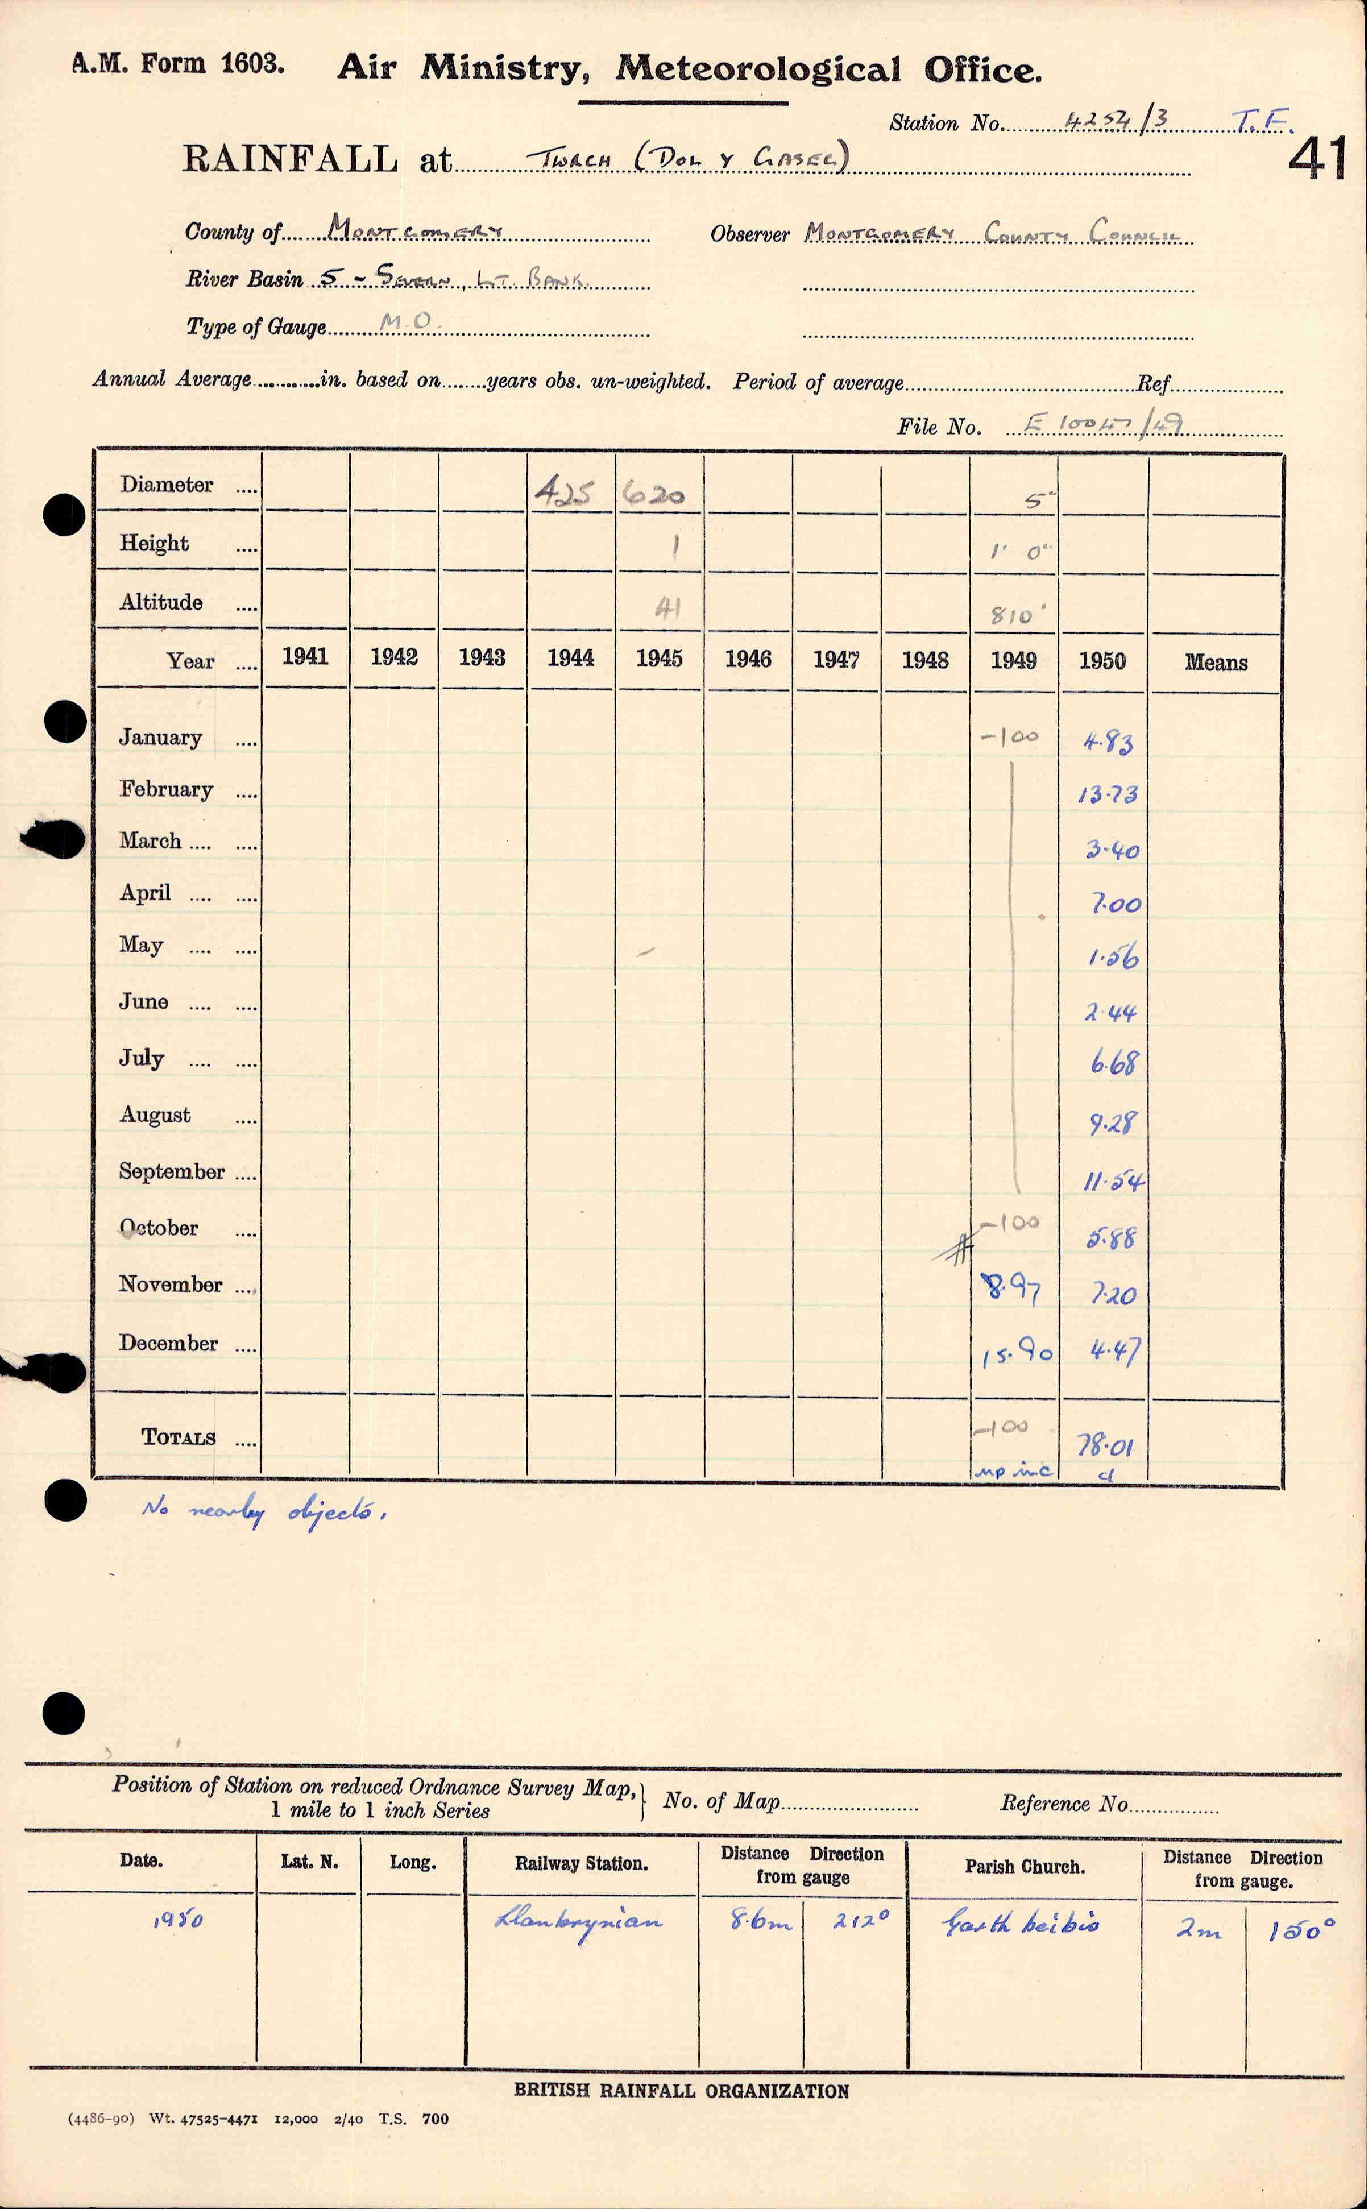 A.M. Form 1603. Air Ministry, Meteorological Office.
Station No. 4254/3 T.F.
41
RAINFALL at TWRCH (DOL Y GASEG)
County of MONTGOMERY Observer MONTGOMERY COUNTY COUNCIL
River Basin 5 - SEVERN, LT. BANK.
Type of Gauge M.O.
Annual Average in. based on years obs. un-weighted. Period of average Ref.
File No. E 10047/49
Diameter 425 620 5"
Height 1 1' 0"
Altitude 41 810'
Year 1941 1942 1943 1944 1945 1946 1947 1948 1949 1950 Means
January -100 4.83
February 13.73
March 3.40
April 7.00
May 1.56
June 2.44
July 6.68
August 9.28
September 11.54
October -100 5.88
November 8.97 7.20
December 15.90 4.47
TOTALS -100 78.01
mp inc d
No nearby objects.
Position of Station on reduced Ordnance Survey Map, } No. of Map Reference No.
1 mile to 1 inch Series
Date. Lat. N. Long. Railway Station. Distance Direction from gauge Parish Church. Distance Direction from gauge.
1950 Llanbrynian 8.6m 212° Garth beibio 2m 150°
BRITISH RAINFALL ORGANIZATION
(4486-90) Wt. 47525-4471 12,000 2/40 T.S. 700